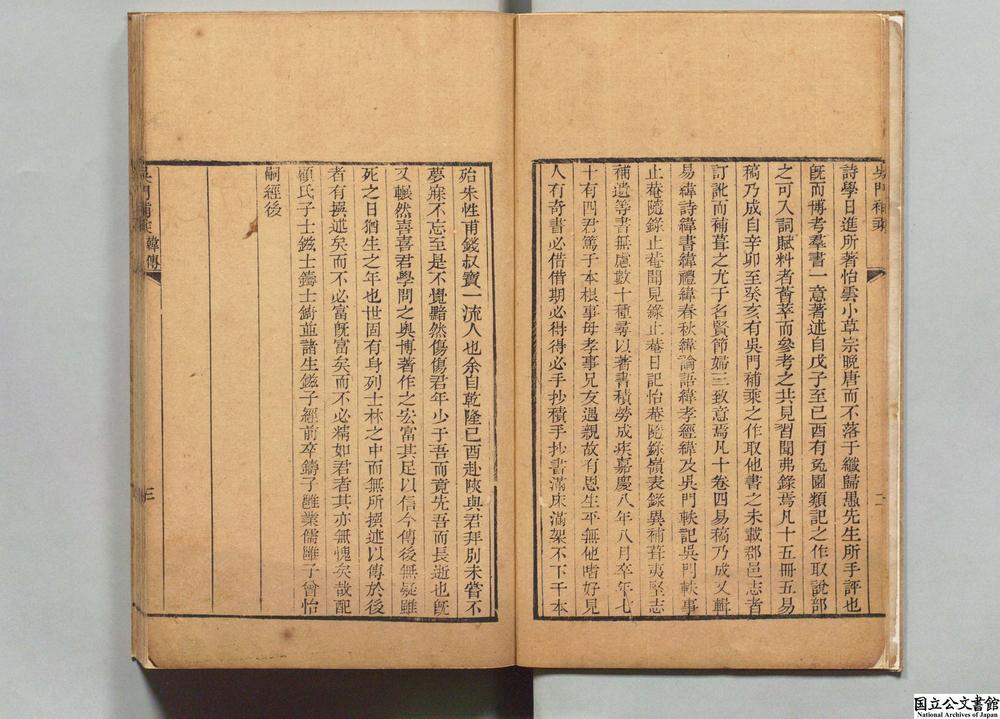 吳門補乘
二
詩學日進所著怡雲小草宗晚唐而不落于纖歸愚先生所手評也
旣而博考羣書一意著述自戊子至己酉有兔園類記之作取說部
之可入詞賦料者薈萃而參考之其見習聞弗錄焉凡十五冊五易
稿乃成自辛卯至癸亥有吳門補乘之作取他書之未載郡邑志者
訂訛而補葺之尤于名賢節婦三致意焉凡十卷四易稿乃成又輯
易緯詩緯書緯禮緯春秋緯論語緯孝經緯及吳門軼記吳門軼事
止菴隨錄止菴聞見錄止菴日記怡菴隨錄嶺表錄異補葺夷堅志
補遺等書無慮數十種尋以著書積勞成疾嘉慶八年八月卒年七
十有四君篤于本根事母孝事兄友遇親故有恩生平無他嗜好見
人有奇書必借借期必得得必手抄積手抄書滿床滿架不下千本
殆朱性甫錢叔寶一流人也余自乾隆己酉赴陝與君拜別未嘗不
夢寐不忘至是不覺黯然傷傷君年少于吾而竟先吾而長逝也旣
又囅然喜喜君學問之奧博著作之宏富其足以信今傳後無疑雖
死之日猶生之年也世固有身列士林之中而無所撰述以傳於後
者有撰述矣而不必富旣富矣而不必精如君者其亦無愧矣哉配
顧氏子士鎡士鑄士錡並諸生鎡子經前卒鑄子雝業儒雝子曾怡
嗣經後
吳門補乘
韓傳
三
国立公文書館
National Archives of Japan